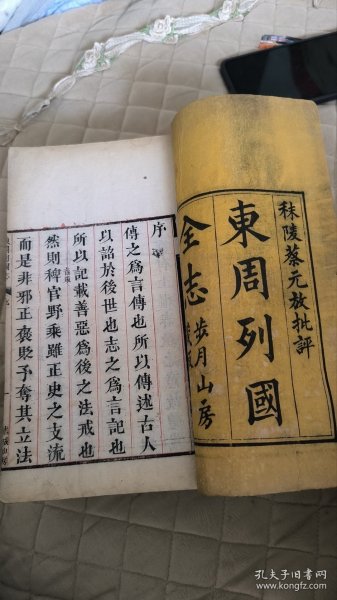 秣陵蔡元放批評
東周列國
全志
步月山房
序
傳之爲言傳也所以傳述古人
以詒於後世也志之爲言記也
所以記載善惡爲後之法戒也
然則稗官野乘雖正史之支流
而是非邪正褒貶予奪其立法
孔夫子旧书网
www.kongfz.com